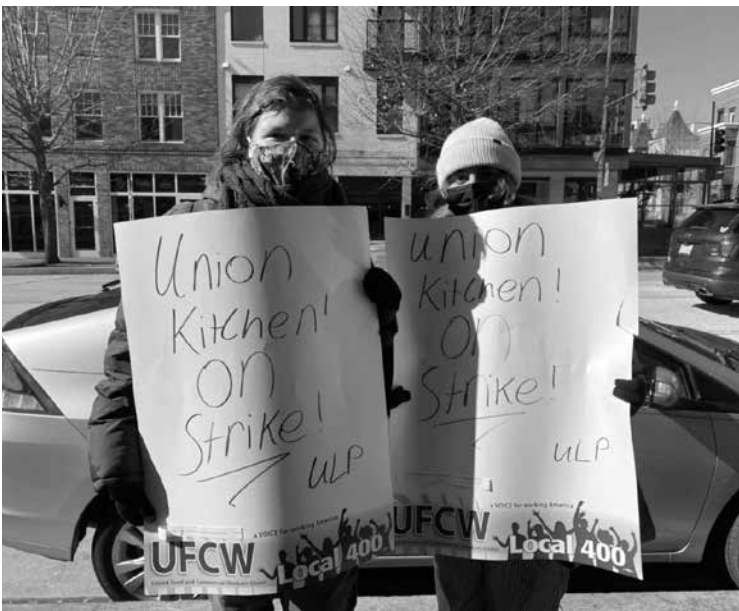 Union
Kitchen!
ON
Strike!
ULP
A VOICE for working America
UFCW
United Food and Commercial Workers Union
Local 400
union
Kitchen!
ON
Strike!
ULP
A VOICE for working America
UFCW
Local 400